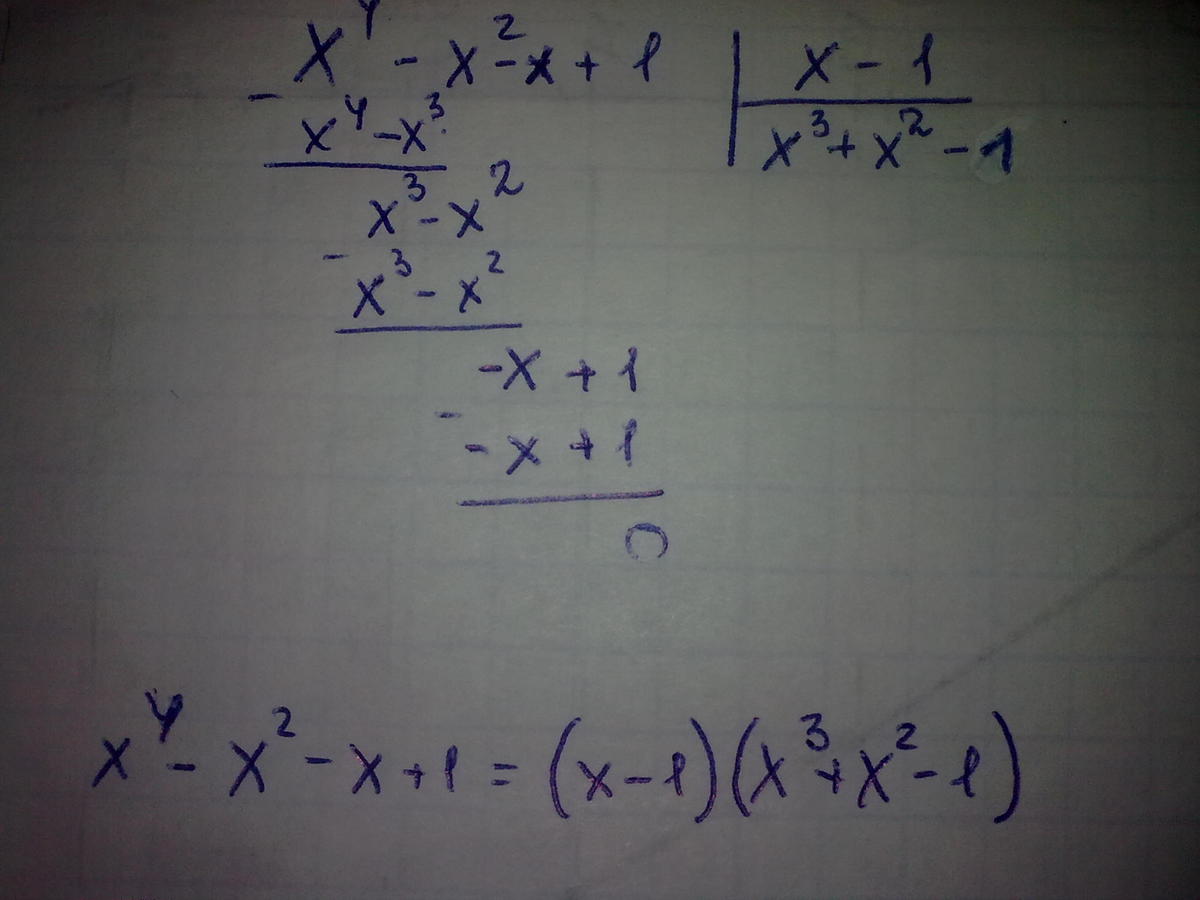 x⁴ - x² - x + 1 | x - 1
- x⁴ - x³ | x³ + x² - 1
x³ - x²
- x³ - x²
-x + 1
- -x + 1
0
x⁴ - x² - x + 1 = (x - 1)(x³ + x² - 1)